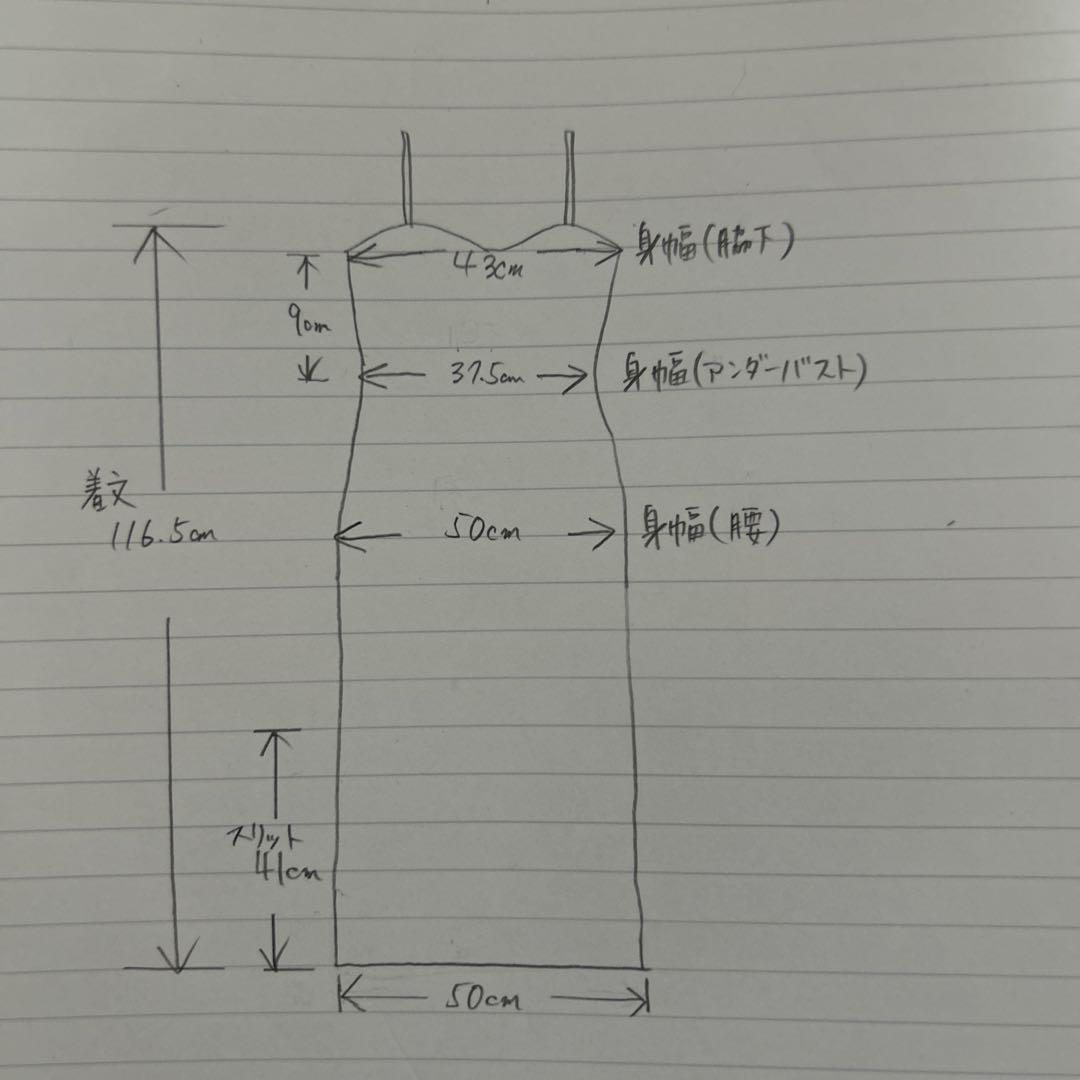 身幅(脇下)
43cm
9cm
37.5cm
身幅(アンダーバスト)
着丈
116.5cm
50cm
身幅(腰)
スリット
41cm
50cm